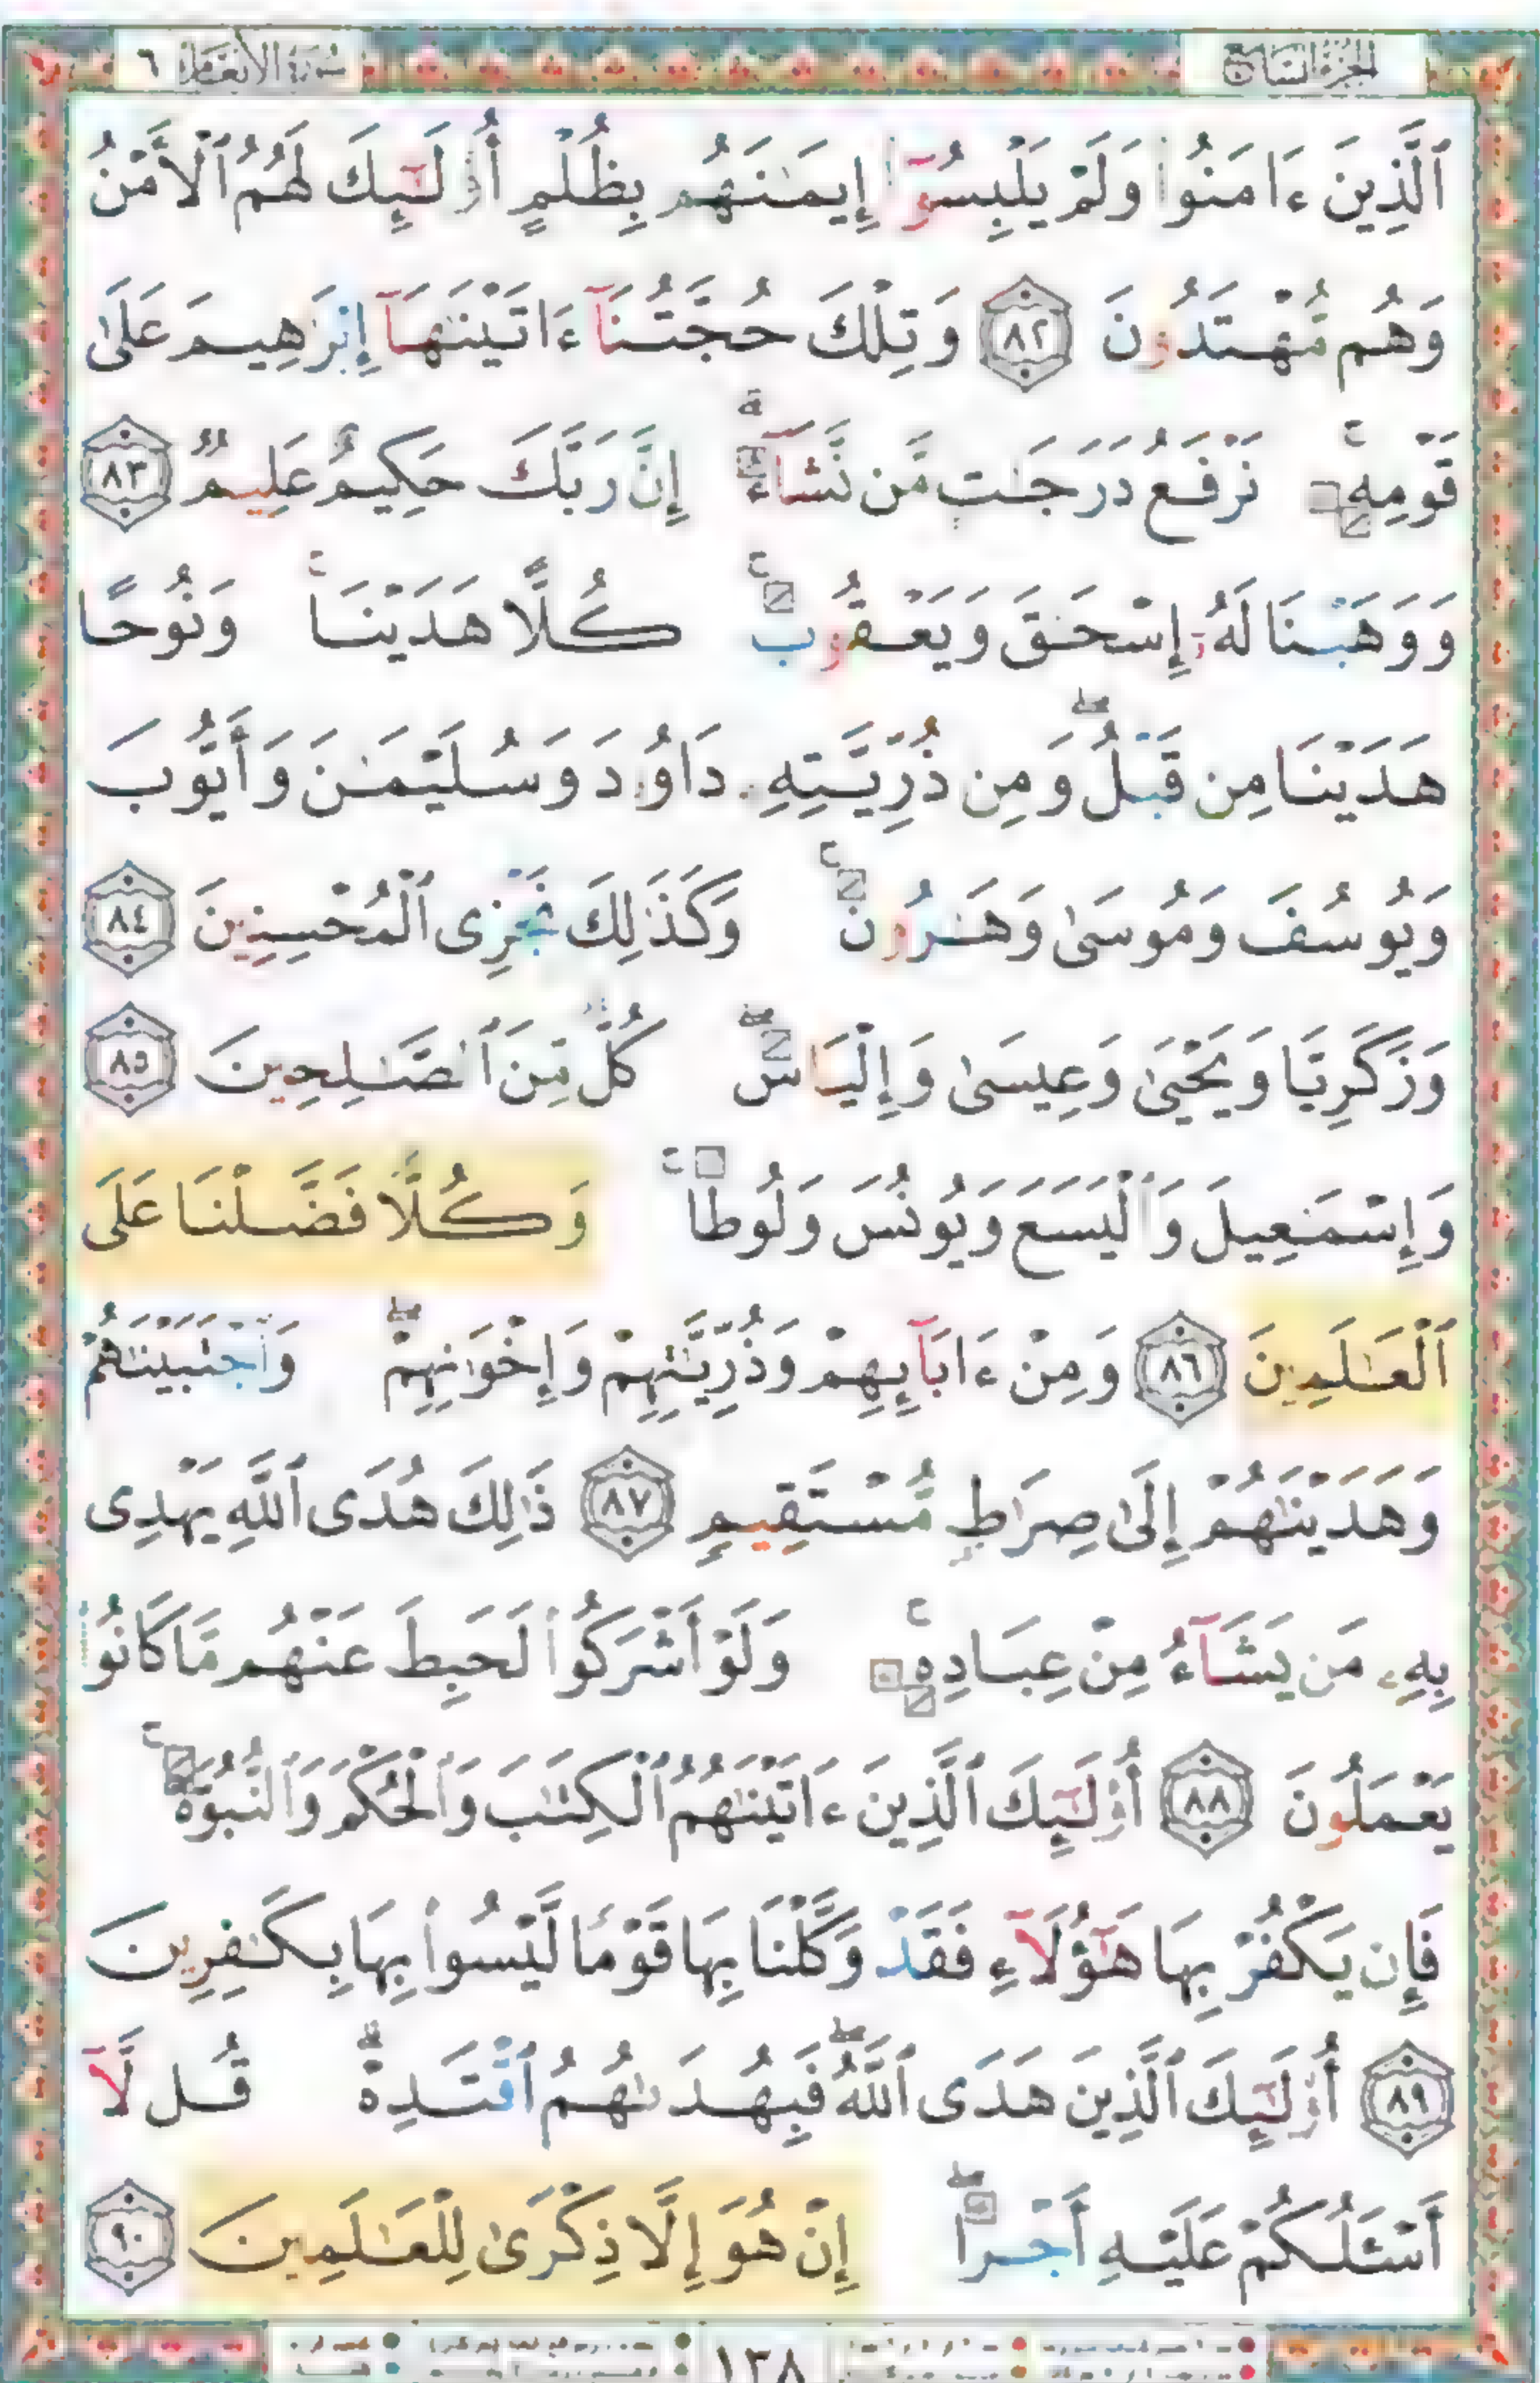 الجزء السابع سورة الأنعام ٦
ٱلَّذِينَ ءَامَنُوا۟ وَلَمْ يَلْبِسُوٓا۟ إِيمَـٰنَهُم بِظُلْمٍ أُو۟لَـٰٓئِكَ لَهُمُ ٱلْأَمْنُ
وَهُم مُّهْتَدُونَ ٨٢ وَتِلْكَ حُجَّتُنَآ ءَاتَيْنَـٰهَآ إِبْرَٰهِيمَ عَلَىٰ
قَوْمِهِۦ ۚ نَرْفَعُ دَرَجَـٰتٍ مَّن نَّشَآءُ ۗ إِنَّ رَبَّكَ حَكِيمٌ عَلِيمٌ ٨٣
وَوَهَبْنَا لَهُۥٓ إِسْحَـٰقَ وَيَعْقُوبَ ۚ كُلًّا هَدَيْنَا ۚ وَنُوحًا
هَدَيْنَا مِن قَبْلُ ۖ وَمِن ذُرِّيَّتِهِۦ دَاوُۥدَ وَسُلَيْمَـٰنَ وَأَيُّوبَ
وَيُوسُفَ وَمُوسَىٰ وَهَـٰرُونَ ۚ وَكَذَٰلِكَ نَجْزِى ٱلْمُحْسِنِينَ ٨٤
وَزَكَرِيَّا وَيَحْيَىٰ وَعِيسَىٰ وَإِلْيَاسَ ۖ كُلٌّ مِّنَ ٱلصَّـٰلِحِينَ ٨٥
وَإِسْمَـٰعِيلَ وَٱلْيَسَعَ وَيُونُسَ وَلُوطًا ۚ وَكُلًّا فَضَّلْنَا عَلَى
ٱلْعَـٰلَمِينَ ٨٦ وَمِنْ ءَابَآئِهِمْ وَذُرِّيَّـٰتِهِمْ وَإِخْوَٰنِهِمْ ۖ وَٱجْتَبَيْنَـٰهُمْ
وَهَدَيْنَـٰهُمْ إِلَىٰ صِرَٰطٍ مُّسْتَقِيمٍ ٨٧ ذَٰلِكَ هُدَى ٱللَّهِ يَهْدِى
بِهِۦ مَن يَشَآءُ مِنْ عِبَادِهِۦ ۚ وَلَوْ أَشْرَكُوا۟ لَحَبِطَ عَنْهُم مَّا كَانُوا۟
يَعْمَلُونَ ٨٨ أُو۟لَـٰٓئِكَ ٱلَّذِينَ ءَاتَيْنَـٰهُمُ ٱلْكِتَـٰبَ وَٱلْحُكْمَ وَٱلنُّبُوَّةَ ۚ
فَإِن يَكْفُرْ بِهَا هَـٰٓؤُلَآءِ فَقَدْ وَكَّلْنَا بِهَا قَوْمًا لَّيْسُوا۟ بِهَا بِكَـٰفِرِينَ
٨٩ أُو۟لَـٰٓئِكَ ٱلَّذِينَ هَدَى ٱللَّهُ ۖ فَبِهُدَىٰهُمُ ٱقْتَدِهْ ۗ قُل لَّآ
أَسْـَٔلُكُمْ عَلَيْهِ أَجْرًا ۖ إِنْ هُوَ إِلَّا ذِكْرَىٰ لِلْعَـٰلَمِينَ ٩٠
١٣٨